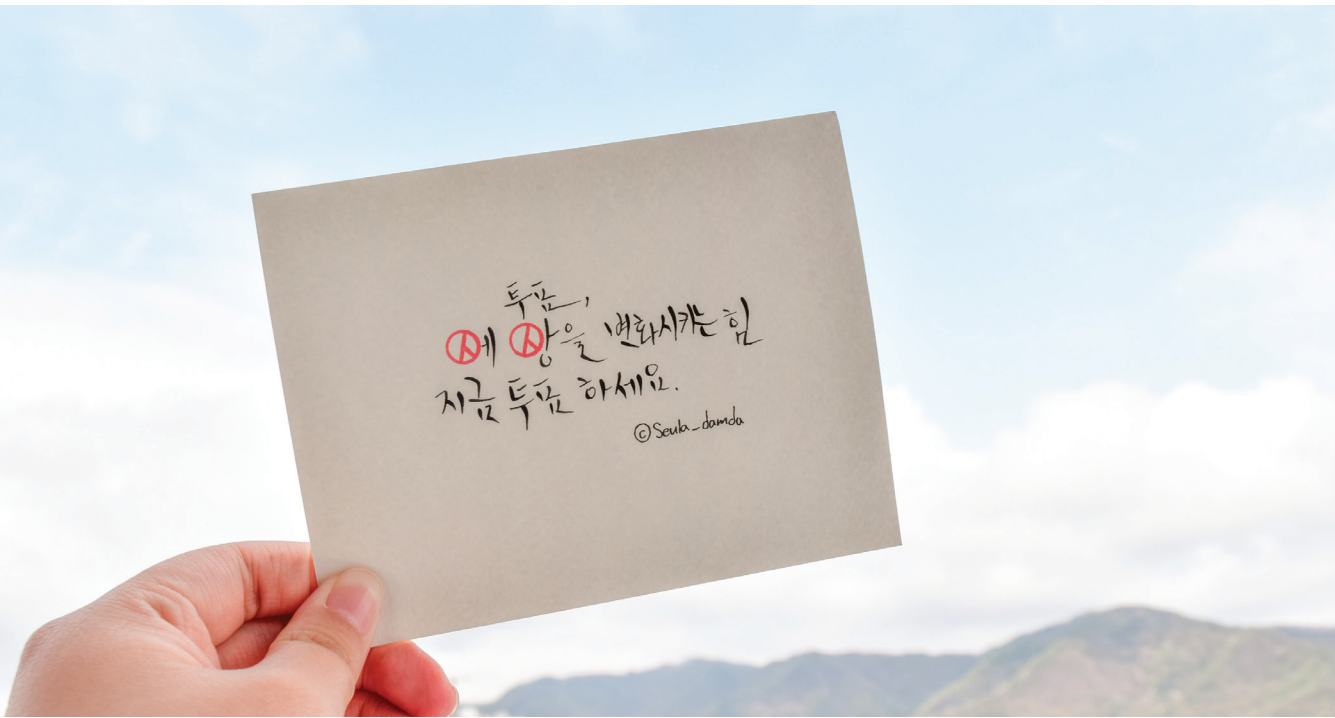 투표,
세상을 변화시키는 힘
지금 투표 하세요.
©Seula_damda